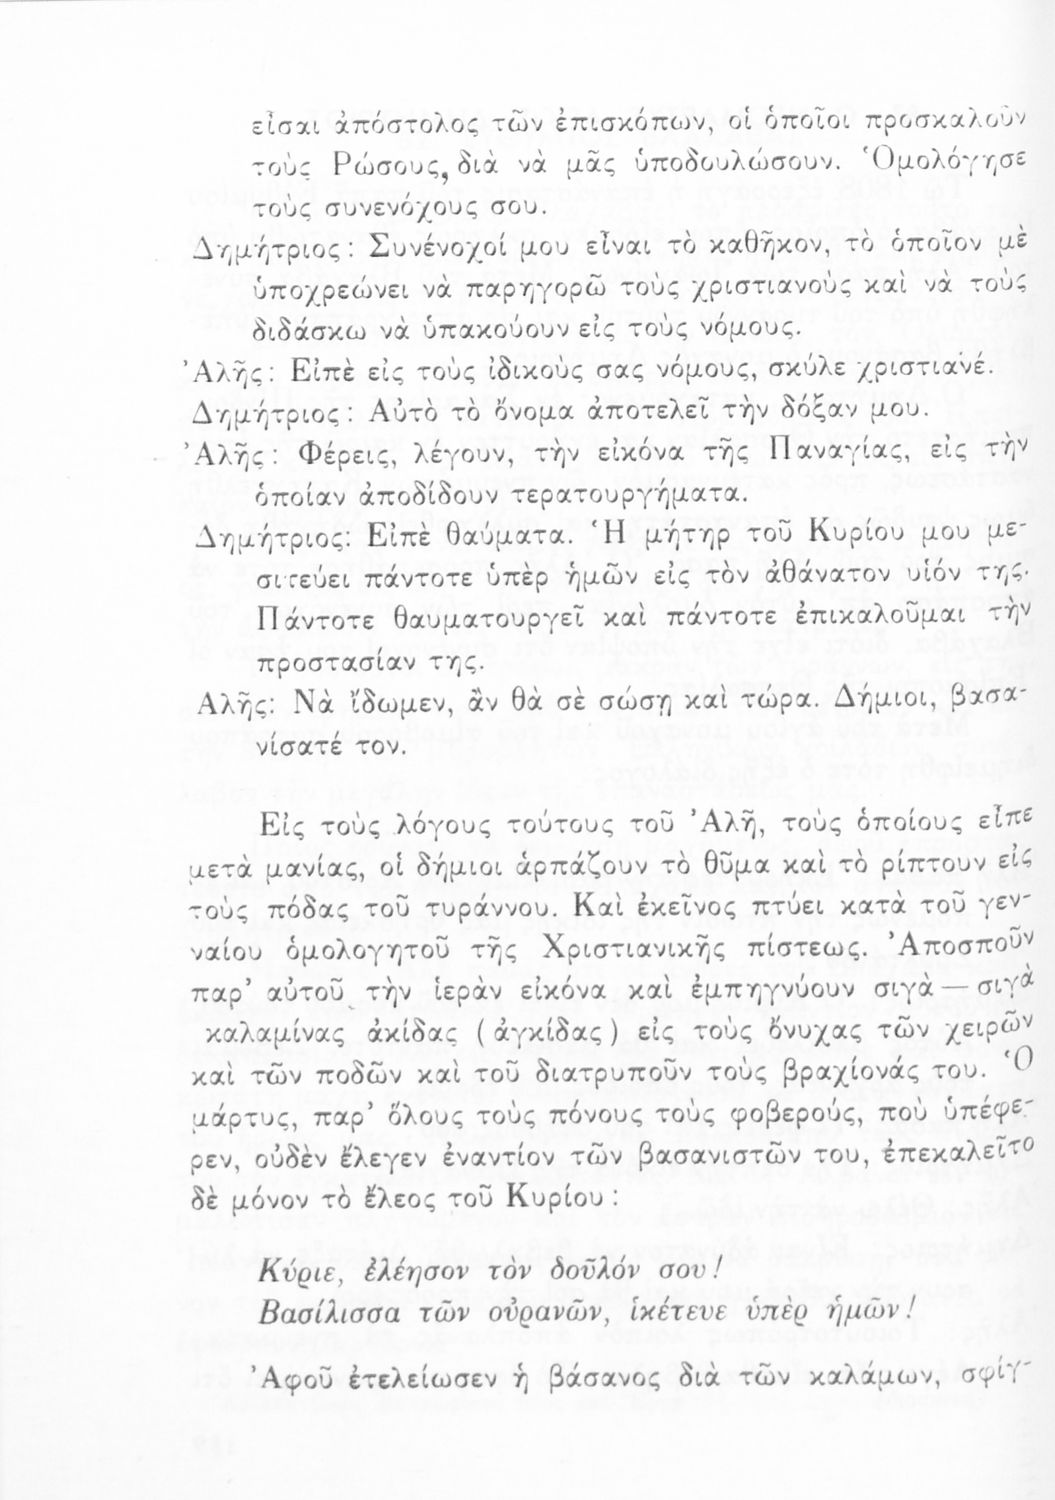 εἶσαι ἀπόστολος τῶν ἐπισκόπων, οἱ ὁποῖοι προσκαλοῦν
τοὺς Ρώσους, διὰ νὰ μᾶς ὑποδουλώσουν. Ὁμολόγησε
τοὺς συνενόχους σου.
Δημήτριος: Συνένοχοί μου εἶναι τὸ καθῆκον, τὸ ὁποῖον μὲ
ὑποχρεώνει νὰ παρηγορῶ τοὺς χριστιανοὺς καὶ νὰ τοὺς
διδάσκω νὰ ὑπακούουν εἰς τοὺς νόμους.
Ἀλῆς: Εἰπὲ εἰς τοὺς ἰδικούς σας νόμους, σκύλε χριστιανέ.
Δημήτριος: Αὐτὸ τὸ ὄνομα ἀποτελεῖ τὴν δόξαν μου.
Ἀλῆς: Φέρεις, λέγουν, τὴν εἰκόνα τῆς Παναγίας, εἰς τὴν
ὁποίαν ἀποδίδουν τερατουργήματα.
Δημήτριος: Εἰπὲ θαύματα. Ἡ μήτηρ τοῦ Κυρίου μου με-
σιτεύει πάντοτε ὑπὲρ ἡμῶν εἰς τὸν ἀθάνατον υἱόν της.
Πάντοτε θαυματουργεῖ καὶ πάντοτε ἐπικαλοῦμαι τὴν
προστασίαν της.
Αλῆς: Νὰ ἴδωμεν, ἂν θὰ σὲ σώσῃ καὶ τώρα. Δήμιοι, βασα-
νίσατέ τον.
Εἰς τοὺς λόγους τούτους τοῦ Ἀλῆ, τοὺς ὁποίους εἶπε
μετὰ μανίας, οἱ δήμιοι ἁρπάζουν τὸ θῦμα καὶ τὸ ρίπτουν εἰς
τοὺς πόδας τοῦ τυράννου. Καὶ ἐκεῖνος πτύει κατὰ τοῦ γεν-
ναίου ὁμολογητοῦ τῆς Χριστιανικῆς πίστεως. Ἀποσποῦν
παρ' αὐτοῦ τὴν ἱερὰν εἰκόνα καὶ ἐμπηγνύουν σιγὰ — σιγὰ
καλαμίνας ἀκίδας (ἀγκίδας) εἰς τοὺς ὄνυχας τῶν χειρῶν
καὶ τῶν ποδῶν καὶ τοῦ διατρυποῦν τοὺς βραχίονάς του. Ὁ
μάρτυς, παρ' ὅλους τοὺς πόνους τοὺς φοβερούς, ποὺ ὑπέφε-
ρεν, οὐδὲν ἔλεγεν ἐναντίον τῶν βασανιστῶν του, ἐπεκαλεῖτο
δὲ μόνον τὸ ἔλεος τοῦ Κυρίου:
Κύριε, ἐλέησον τὸν δοῦλόν σου!
Βασίλισσα τῶν οὐρανῶν, ἱκέτευε ὑπὲρ ἡμῶν!
Ἀφοῦ ἐτελείωσεν ἡ βάσανος διὰ τῶν καλάμων, σφίγ-